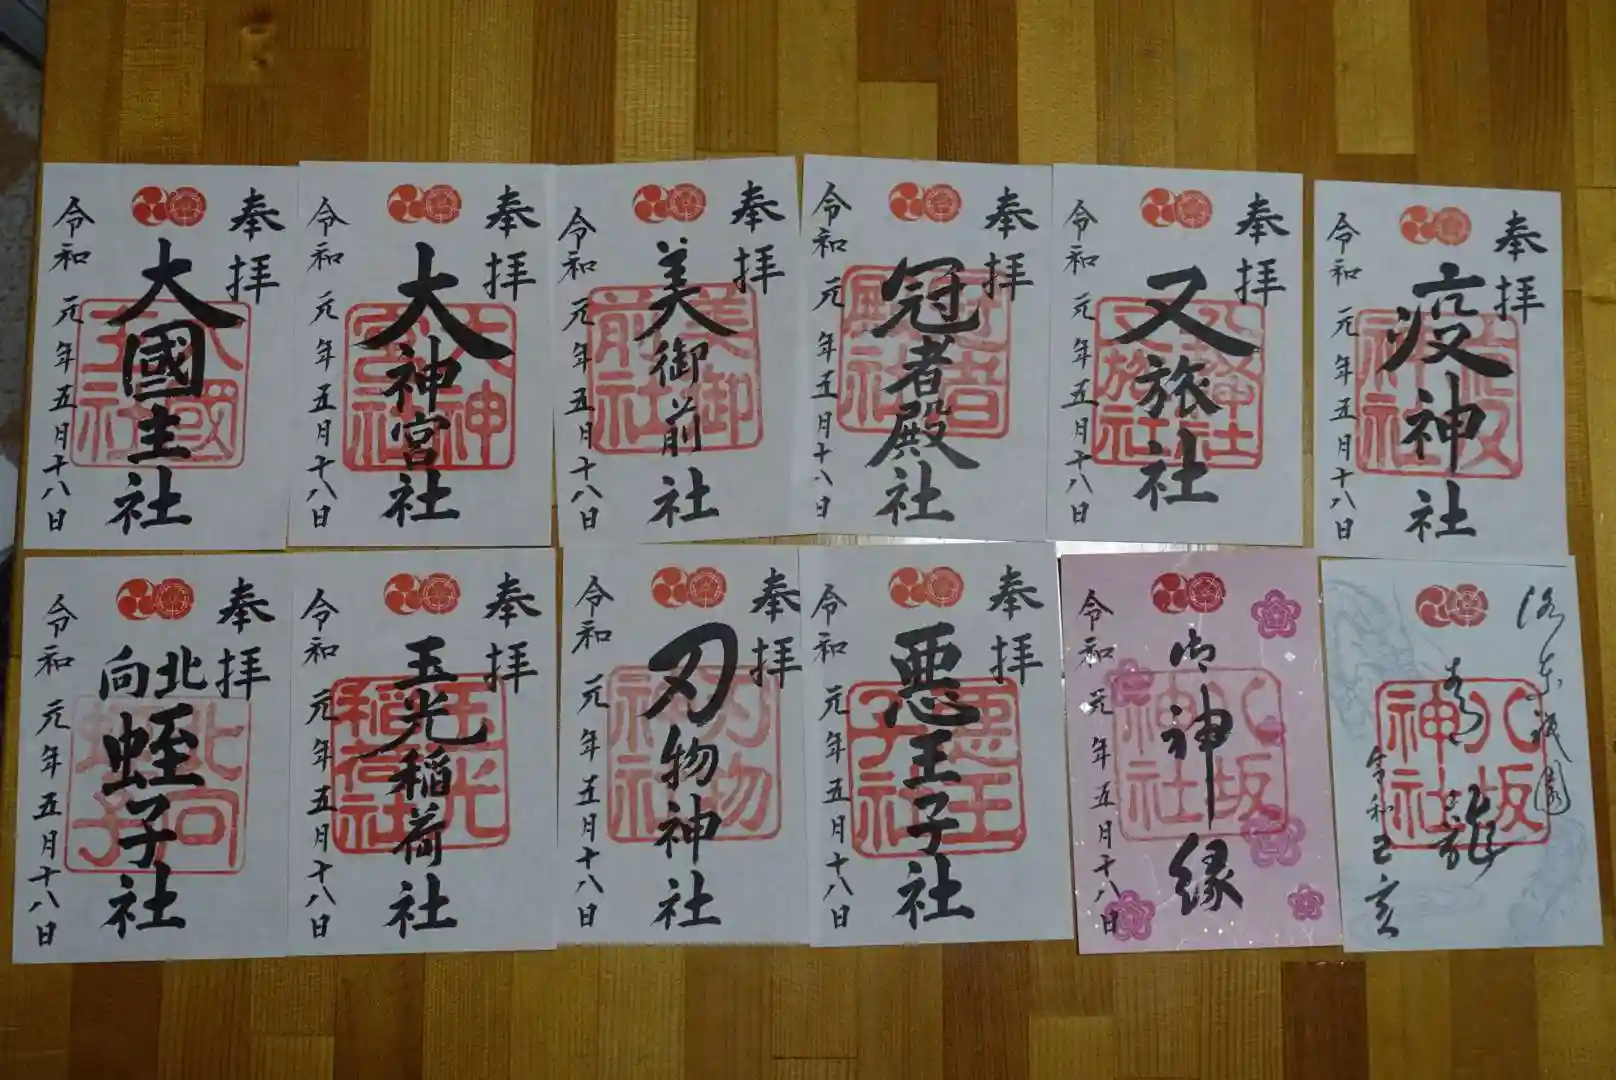 奉拝
大國主社
令和元年五月十八日
大国主社
奉拝
大神宮社
令和元年五月十八日
大神宮社
奉拝
美御前社
令和元年五月十八日
美御前社
奉拝
冠者殿社
令和元年五月十八日
冠者殿社
奉拝
又旅社
令和元年五月十八日
又旅社
奉拝
疫神社
令和元年五月十八日
疫神社
奉拝
北向
蛭子社
令和元年五月十八日
北向蛭子
奉拝
玉光稲荷社
令和元年五月十八日
玉光稲荷社
奉拝
刃物神社
令和元年五月十八日
刃物神社
奉拝
悪王子社
令和元年五月十八日
悪王子社
御神縁
令和元年五月十八日
八坂神社
洛東祇園
青龍
令和己亥
八坂神社